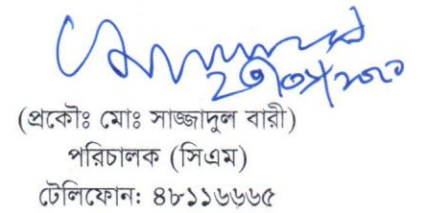 (প্রকৌঃ মোঃ সাজ্জাদুল বারী)
পরিচালক (সিএম)
টেলিফোন: ৪৮১১৬৬৬৫